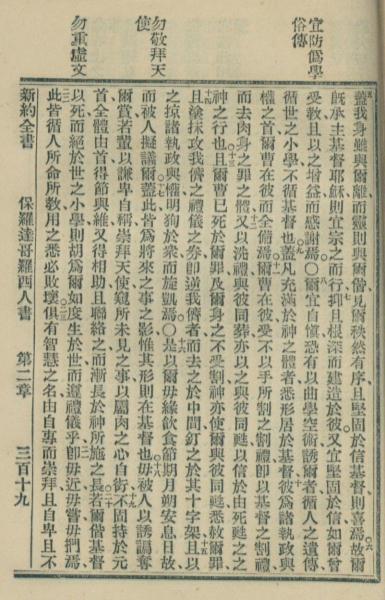 宜防僞學
俗傳
勿敬拜天
使
勿重虛文
蓋我身雖與爾離而靈則與爾偕見爾秩然有序且堅固於信基督則喜焉故爾
既承主基督耶穌則宜宗之而行抑且根深而建造於彼又宜堅固於信如爾曾
受教且以之增益而感謝焉〇爾宜自愼恐有以曲學空術誘爾者循人之遺傳
循世之小學不循基督也蓋凡充滿於神之體者悉形居於基督彼爲諸執政與
權之首爾曹在彼而全備焉爾曹在彼受不以手所割之割禮卽以基督之割禮
而去肉身之罪之體又以洗禮與彼同葬亦以之與彼同甦以信於由死甦之之
神之行也且爾曹已死於爾罪及爾身之不受割神亦使爾與彼同甦悉赦爾罪
且塗抹攻我儕之禮儀之券卽逆我儕者而去之於中間釘之於其十字架且以
之掠諸執政與權明狥於衆而旋凱焉〇是以爾毋緣飲食節期月朔安息日故
而被人擬議爾蓋此皆爲將來之事之影惟其形則在基督也毋被人以誘騙奪
爾賞若輩以謙卑自稱崇拜天使窺所未見之事以屬肉之心自衒不固持於元
首全體由首得節與維又得相助且聯絡之而漸長於神所施之長若爾偕基督
以死而絕於世之小學則胡爲爾如度生於世而遵禮儀乎卽毋近毋嘗毋捫焉
此皆循人所命所教用之悉必敗壞俱有智慧之名由自專而崇拜且自卑且不
新約全書 保羅達哥羅西人書 第二章 三百十九